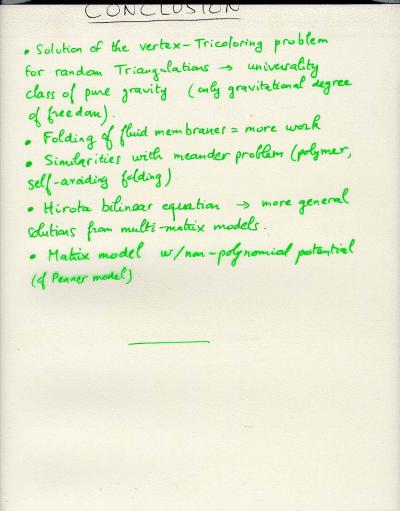 CONCLUSION
• Solution of the vertex-Tricoloring problem
for random Triangulations → universality
class of pure gravity (only gravitational degree
of freedom).
• Folding of fluid membranes = more work
• Similarities with meander problem (polymer,
self-avoiding folding)
• Hirota bilinear equation → more general
solutions from multi-matrix models.
• Matrix model w/non-polynomial potential
(cf Penner model)